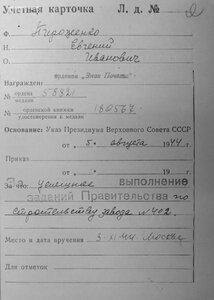 Учетная карточка Л. д. №
Ф. Пироженко
И. Евгений
О. Иванович
ордена „Знак Почета"
Награжден:
№ ордена 58821
медали
№ орденской книжки 180567
удостоверения к медали
Основание: Указ Президиума Верховного Совета СССР
от „5" августа 1944 г.
Приказ
от „ " 19 г.
За что: успешное выполнение
заданий Правительства по
строительству завода № 402.
Место и дата вручения 3-XI-44. Москва
Для отметок